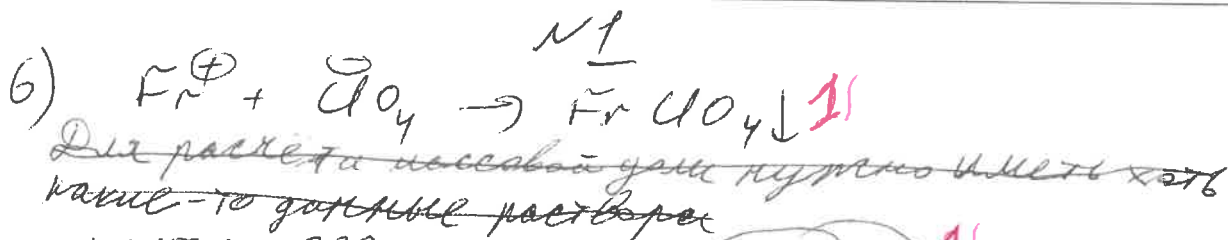 N1
6) Fr⊕ + ClO₄⊖ → FrClO₄↓ 1
Для расчета массовой доли нужно иметь хоть
какие-то данные раствора